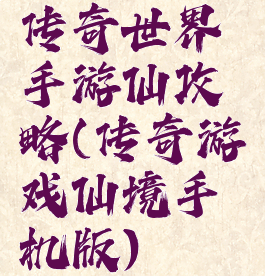 传奇世界
手游仙攻
略(传奇游
戏仙境手
机版)